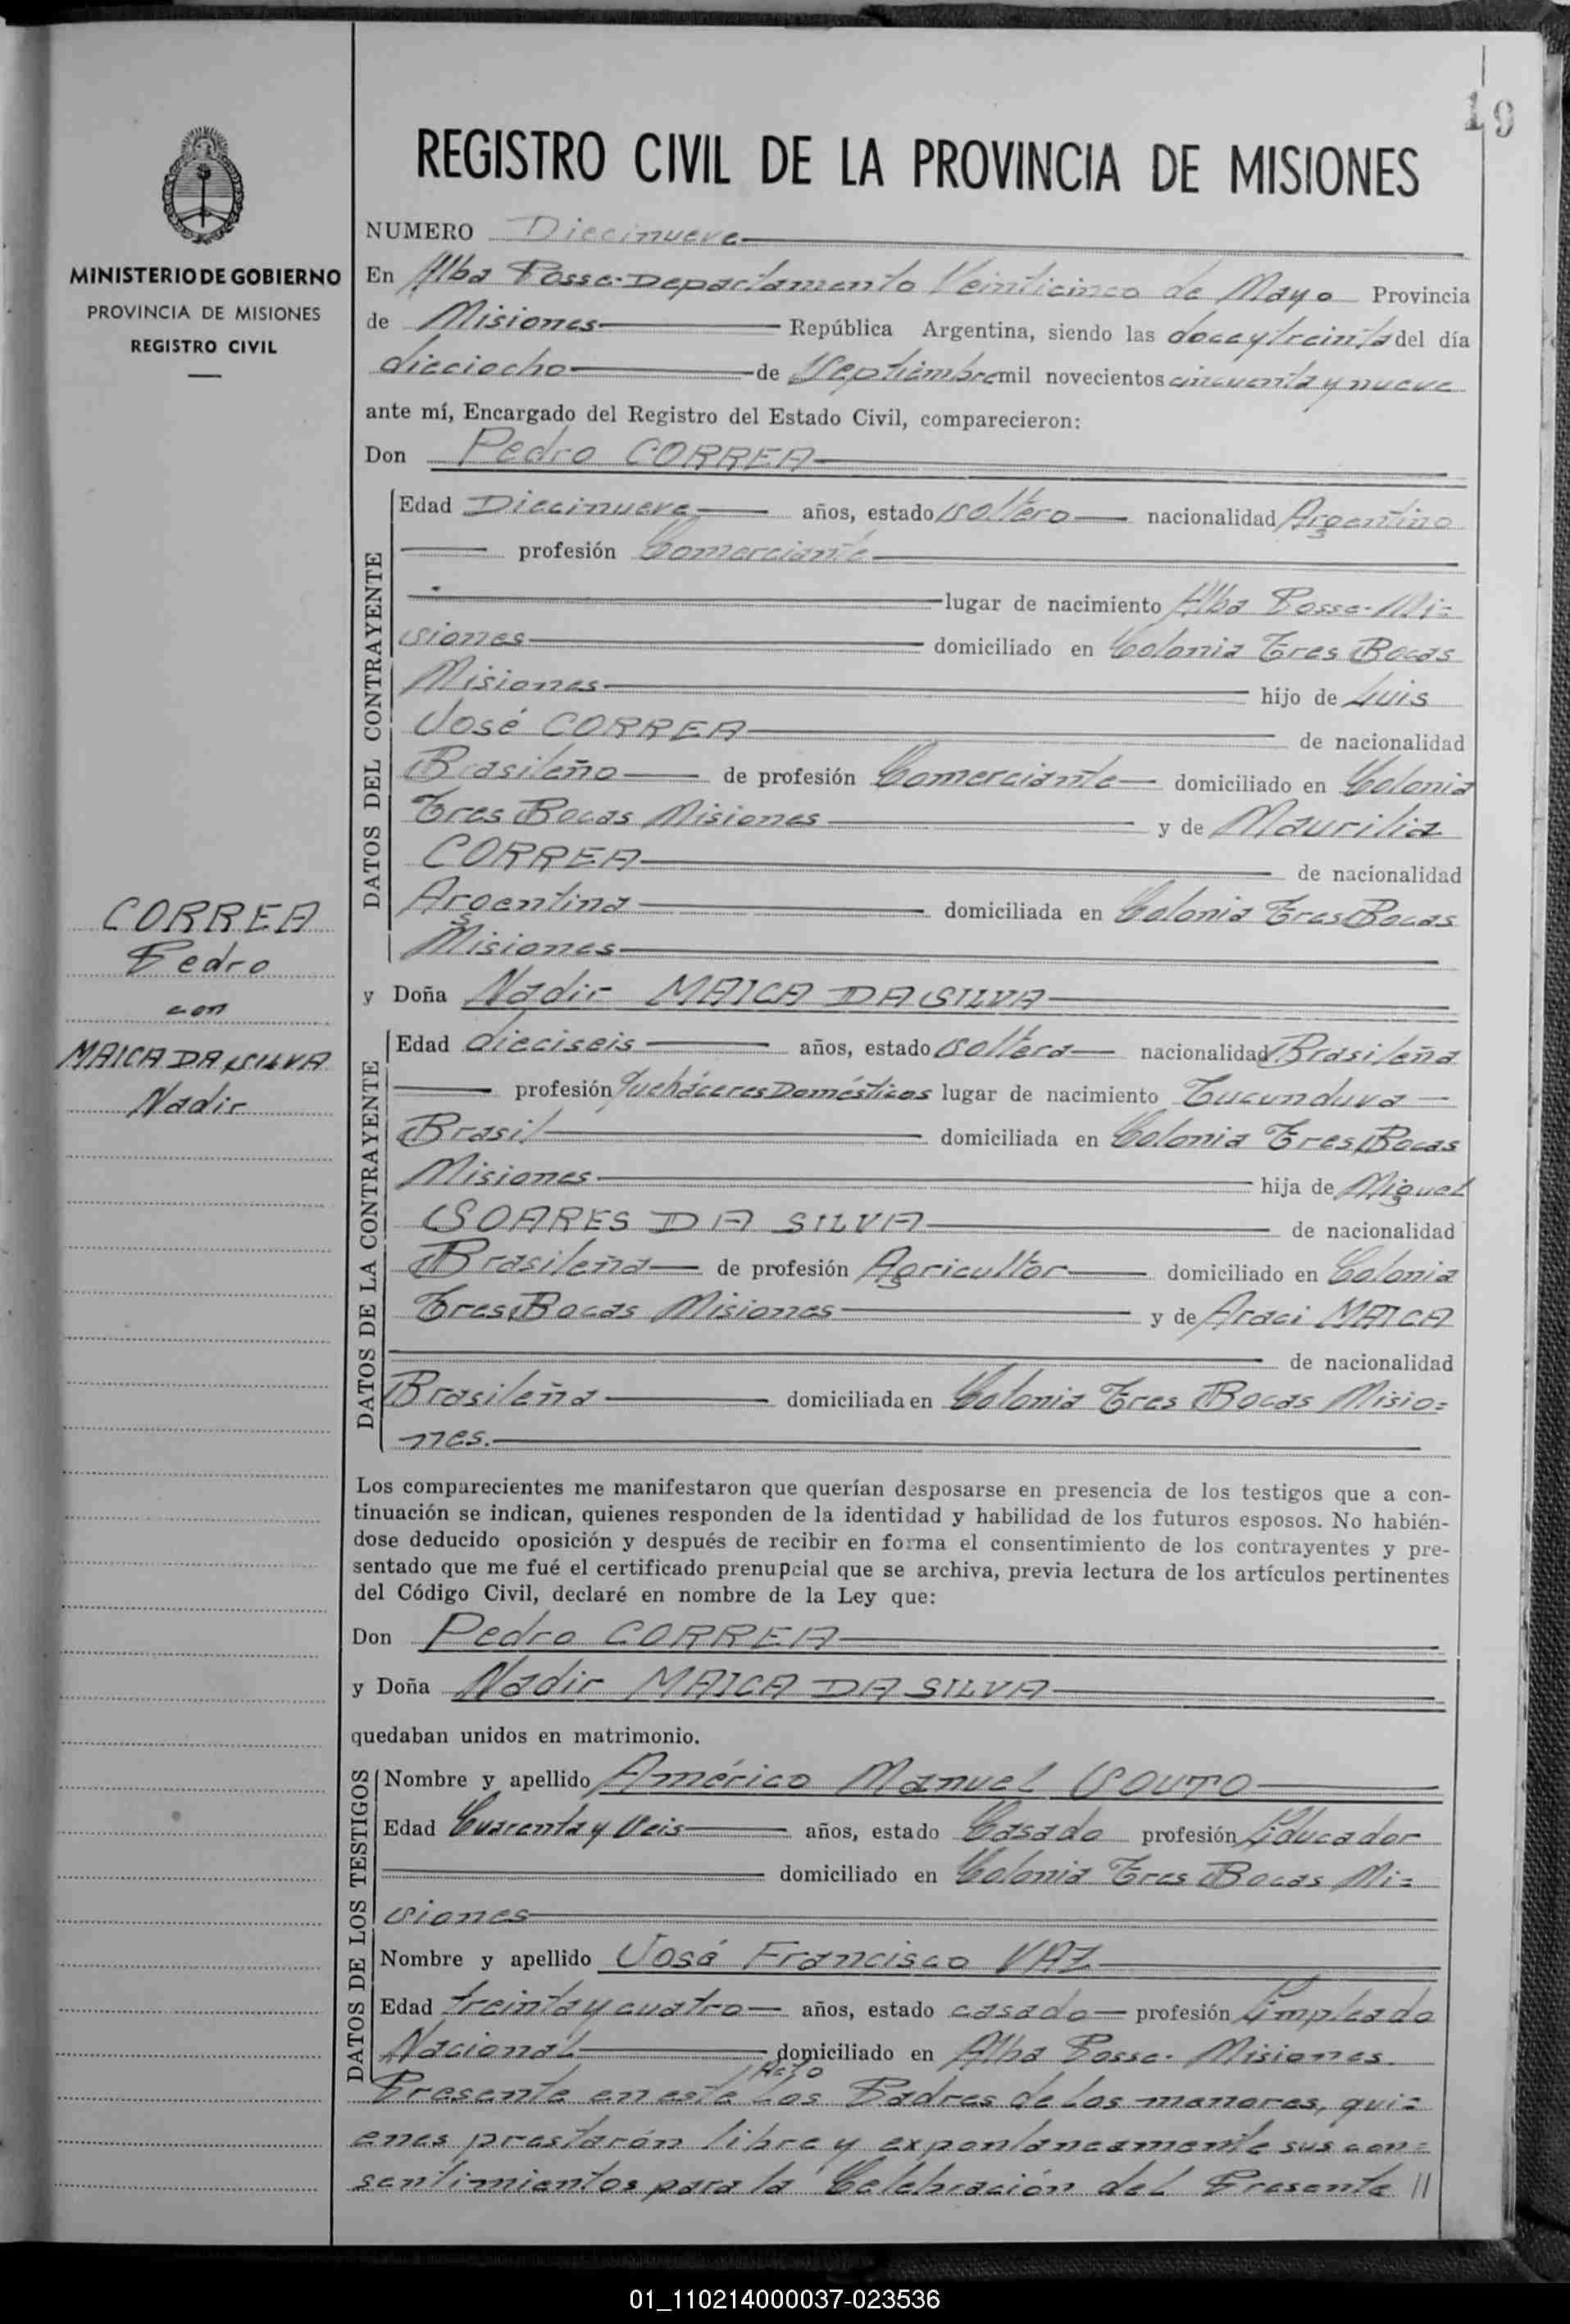 19
REGISTRO CIVIL DE LA PROVINCIA DE MISIONES
MINISTERIO DE GOBIERNO
PROVINCIA DE MISIONES
REGISTRO CIVIL
NUMERO Diecinueve
En Alba Posse-Departamento Veinticinco de Mayo Provincia
de Misiones República Argentina, siendo las doce y treinta del día
dieciocho de Septiembre mil novecientos cincuenta y nueve
ante mí, Encargado del Registro del Estado Civil, comparecieron:
Don Pedro CORREA
DATOS DEL CONTRAYENTE
Edad Diecinueve años, estado soltero nacionalidad Argentino
profesión Comerciante
lugar de nacimiento Alba Posse-Mi=
siones domiciliado en Colonia Tres Bocas
Misiones hijo de Luis
José CORREA de nacionalidad
Brasileño de profesión Comerciante domiciliado en Colonia
Tres Bocas Misiones y de Maurilia
CORREA de nacionalidad
Argentina domiciliada en Colonia Tres Bocas
Misiones
CORREA
Pedro
con
MAICA DA SILVA
Nadir
y Doña Nadir MAICA DA SILVA
DATOS DE LA CONTRAYENTE
Edad dieciseis años, estado soltera nacionalidad Brasileña
profesión Queháceres Domésticos lugar de nacimiento Tucunduva
Brasil domiciliada en Colonia Tres Bocas
Misiones hija de Miguel
SOARES DA SILVA de nacionalidad
Brasileña de profesión Agricultor domiciliado en Colonia
Tres Bocas Misiones y de Araci MAICA
de nacionalidad
Brasileña domiciliada en Colonia Tres Bocas Misio=
nes.
Los comparecientes me manifestaron que querían desposarse en presencia de los testigos que a con-
tinuación se indican, quienes responden de la identidad y habilidad de los futuros esposos. No habién-
dose deducido oposición y después de recibir en forma el consentimiento de los contrayentes y pre-
sentado que me fué el certificado prenupcial que se archiva, previa lectura de los artículos pertinentes
del Código Civil, declaré en nombre de la Ley que:
Don Pedro CORREA
y Doña Nadir MAICA DA SILVA
quedaban unidos en matrimonio.
DATOS DE LOS TESTIGOS
Nombre y apellido Américo Manuel SOUTO
Edad Cuarenta y Seis años, estado Casado profesión Educador
domiciliado en Colonia Tres Bocas Mi=
siones
Nombre y apellido José Francisco VAZ
Edad treinta y cuatro años, estado casado profesión Empleado
Nacional domiciliado en Alba Posse- Misiones.
Acto
Presente en este Los Padres de Los menores, qui=
enes prestarón libre y expontaneamente sus con=
sentimientos para la Celebración del Presente //
01_110214000037-023536